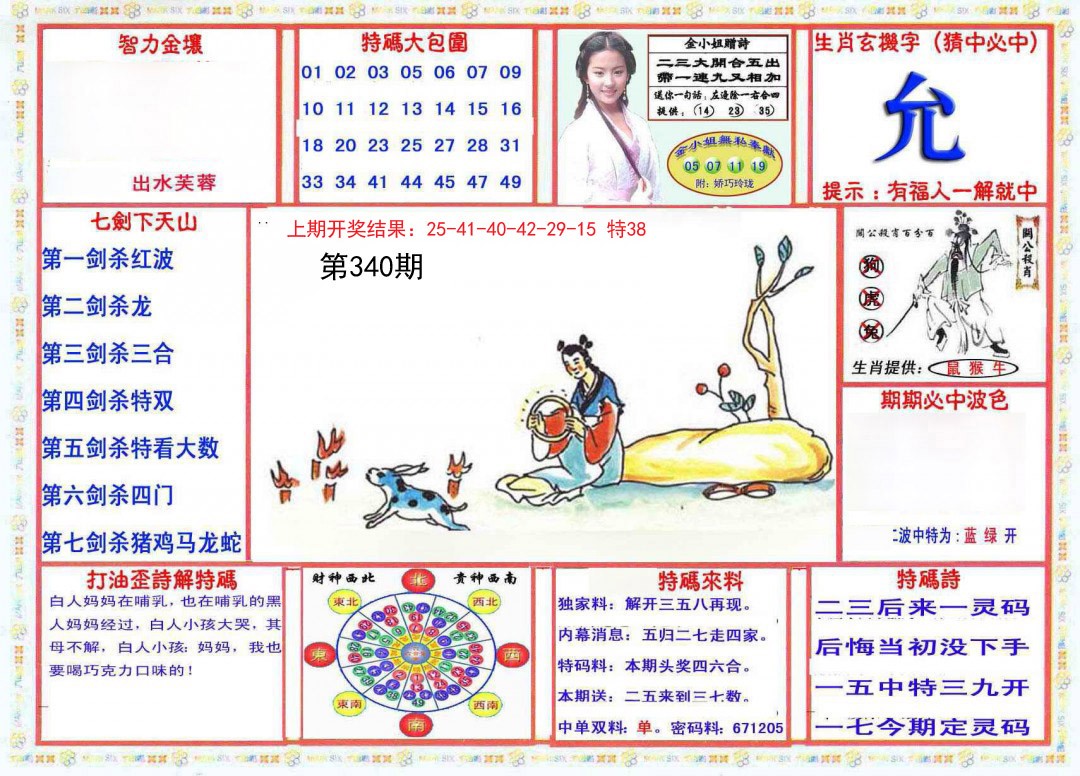 智力金壤
出水芙蓉
特碼大包圍
01 02 03 05 06 07 09
10 11 12 13 14 15 16
18 20 23 25 27 28 31
33 34 41 44 45 47 49
金小姐赠詩
二三大開合五出
帶一連九又相加
送你一句話，左邊除一右合四
提供：(14) 23 35)
金小姐無私奉獻
05 07 11 19
附：娇巧玲珑
生肖玄機字（猜中必中）
允
提示：有福人一解就中
七劍下天山
第一剑杀红波
第二剑杀龙
第三剑杀三合
第四剑杀特双
第五剑杀特看大数
第六剑杀四门
第七剑杀猪鸡马龙蛇
上期开奖结果：25-41-40-42-29-15 特38
第340期
關公殺肖百分百
關公殺肖
狗
虎
兔
生肖提供：鼠 猴 牛
期期必中波色
二波中特为：蓝 绿 开
打油歪詩解特碼
白人妈妈在哺乳，也在哺乳的黑
人妈妈经过，白人小孩大哭，其
母不解，白人小孩：妈妈，我也
要喝巧克力口味的！
财神西北
贵神西南
北
東北
西北
東
西
東南
西南
南
特碼來料
独家料：解开三五八再现。
内幕消息：五归二七走四家。
特码料：本期头奖四六合。
本期送：二五来到三七数。
中单双料：单。密码料：671205
特碼詩
二三后来一灵码
后悔当初没下手
一五中特三九开
一七今期定灵码